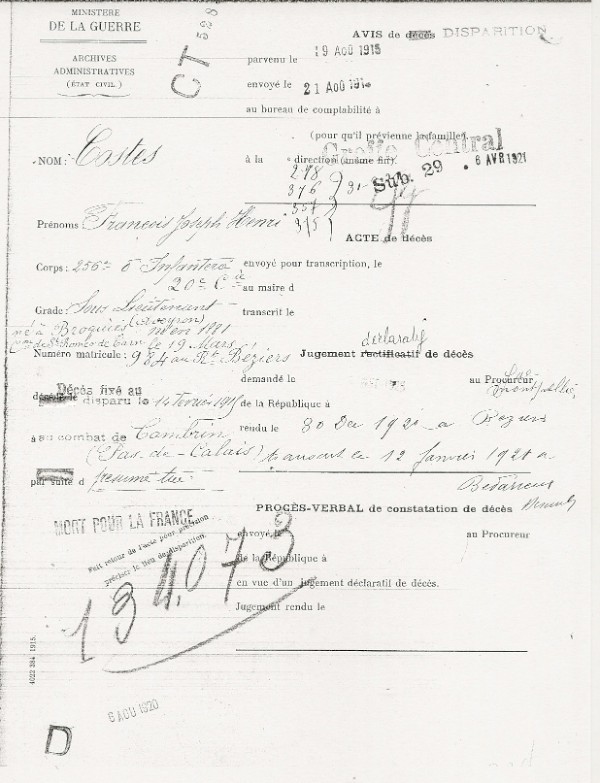 MINISTERE
DE LA GUERRE
ARCHIVES
ADMINISTRATIVES
(ÉTAT CIVIL)
CT 528
AVIS de décès DISPARITION
parvenu le 19 AOÛ 1915
envoyé le 21 AOÛ 191
au bureau de comptabilité à
(pour qu'il prévienne la famille)
Greffe Central
à la direction (même fin).
Sub. 29 • 6 AVR 1921
278
376
357
315
31
NOM: Costes
Prénoms: François Joseph Henri
ACTE de décès
Corps: 256e d'Infanterie
envoyé pour transcription, le
20e Cie
au maire d
Grade: Sous Lieutenant
transcrit le
né à Broquiès (Aveyron) en 1881
de St Romes de Tarn le 19 Mars
déclaratif
Numéro matricule: 984 au Rt Béziers
Jugement rectificatif de décès
demandé le
au Procureur
Montpellier
Décès fixé au
disparu le 14 Fevrier 1915
de la République à
rendu le 30 Dec 1920 a Beziers
à au combat de Cambrin
(Pas-de-Calais)
transcrit le 12 Janvier 1921 a
Bédarieux
Herault
par suite d présumé tué
PROCÈS-VERBAL de constatation de décès
MORT POUR LA FRANCE
envoyé le
au Procureur
Fait retour du Vacse pour précision
préciser le lieu de disparition.
de la République à
134.073
en vue d'un jugement déclaratif de décès.
Jugement rendu le
4022 384 1915.
6 AOU 1920
D